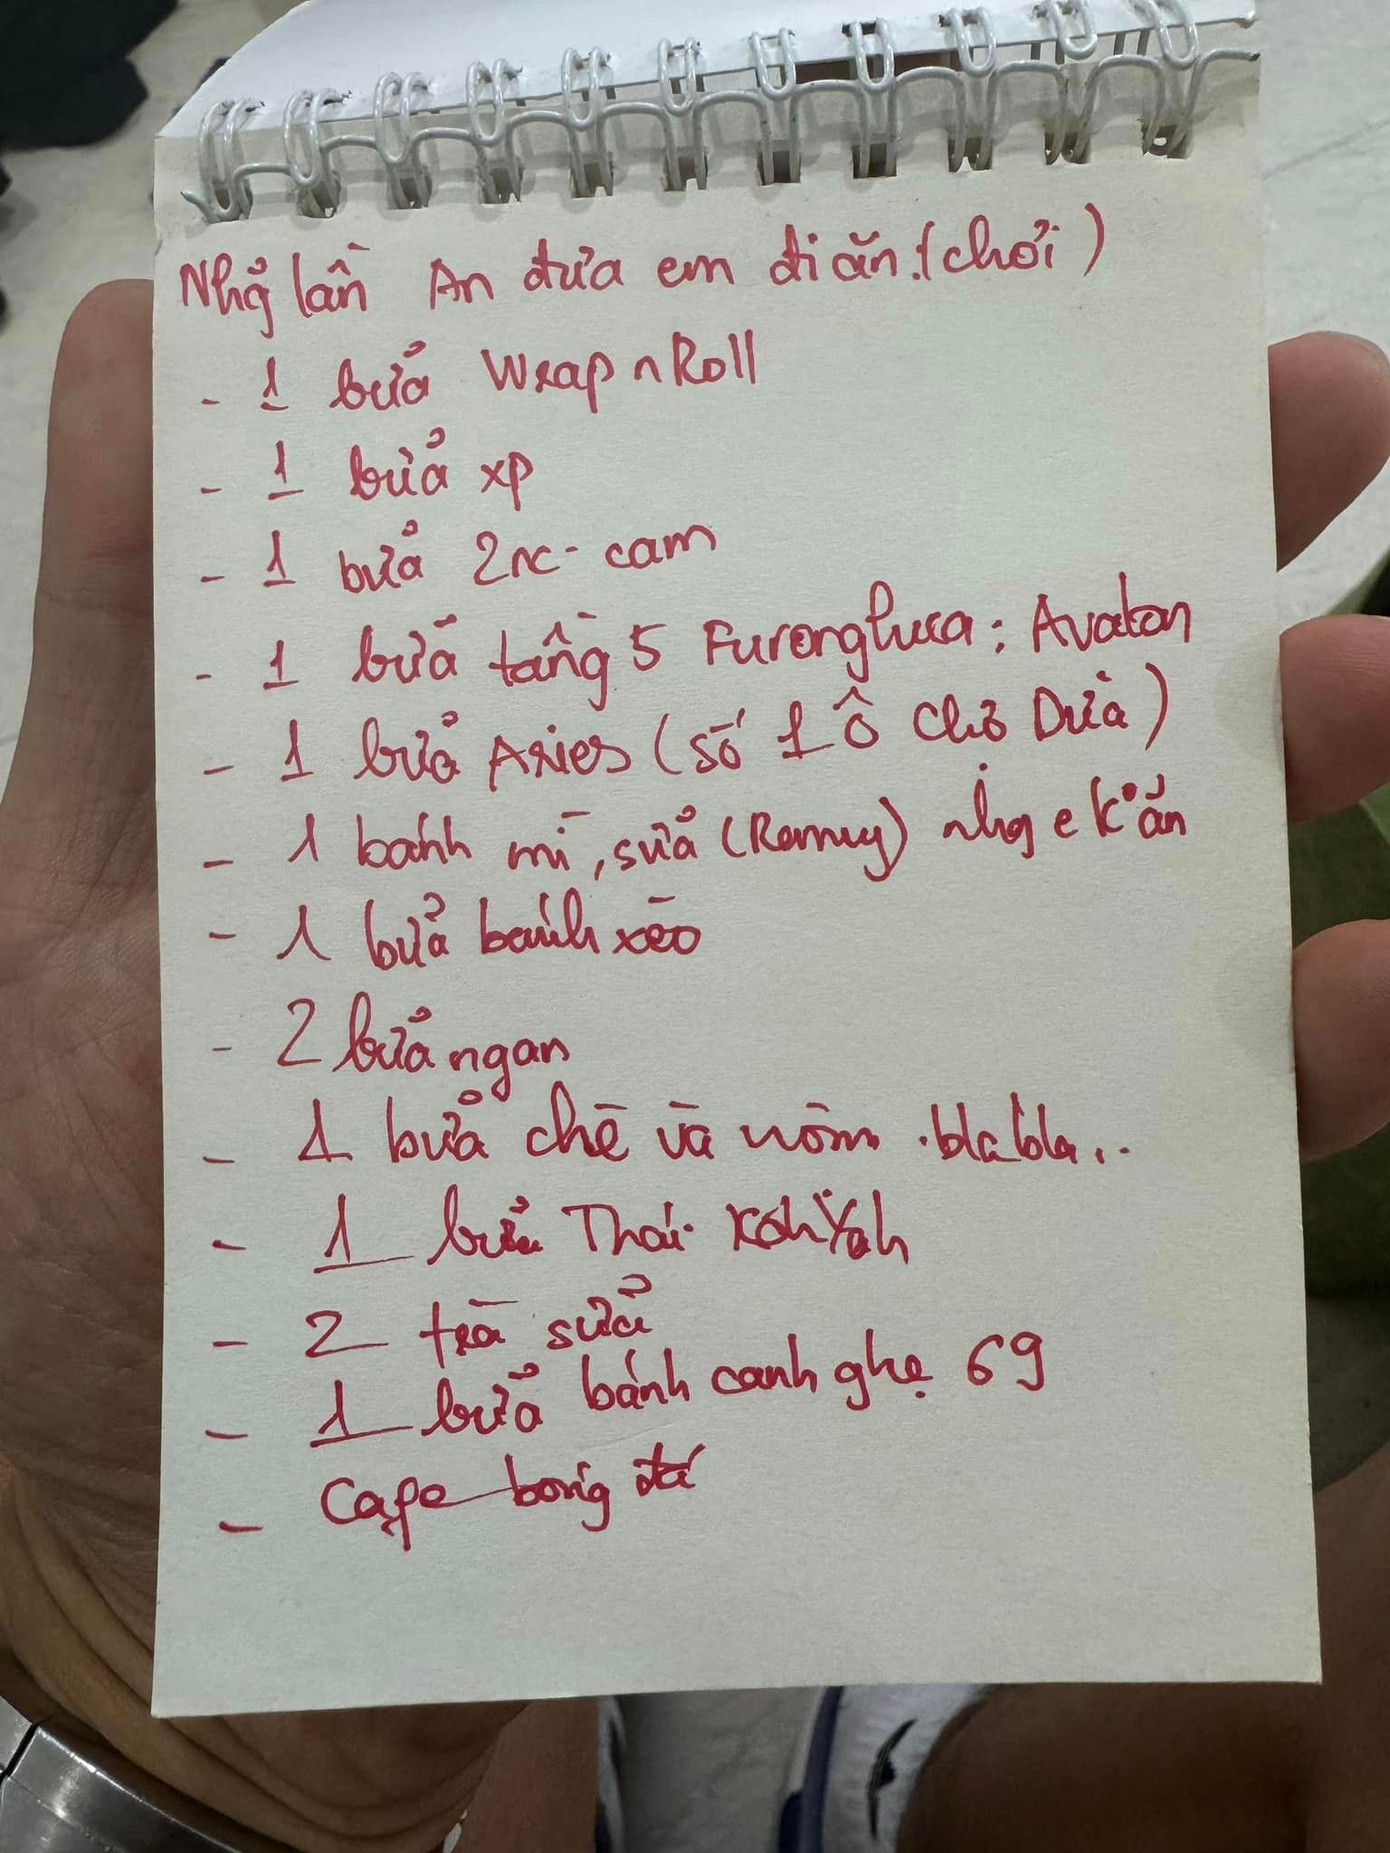 Nhg̉ lần An đưa em đi ăn.(chơi)
- 1 bửả Wrap n Roll
- 1 bửả xp
- 1 bửả 2nc- cam
- 1 bữa tầng 5 : Avalon
- 1 bửả Aries (số 1 Ô Chợ Dừa)
- 1 bánh mì, sửả (Remuy) nhg e k° ăn
- 1 bửả bánh xèo
- 2 bửả ngan
- 1 bửả chè và nộm .blabla...
- 1 bửả Thái KohYah
- 2 trà sửả
- 1 bửả bánh canh ghẹ 69
- Cafe bóng đá